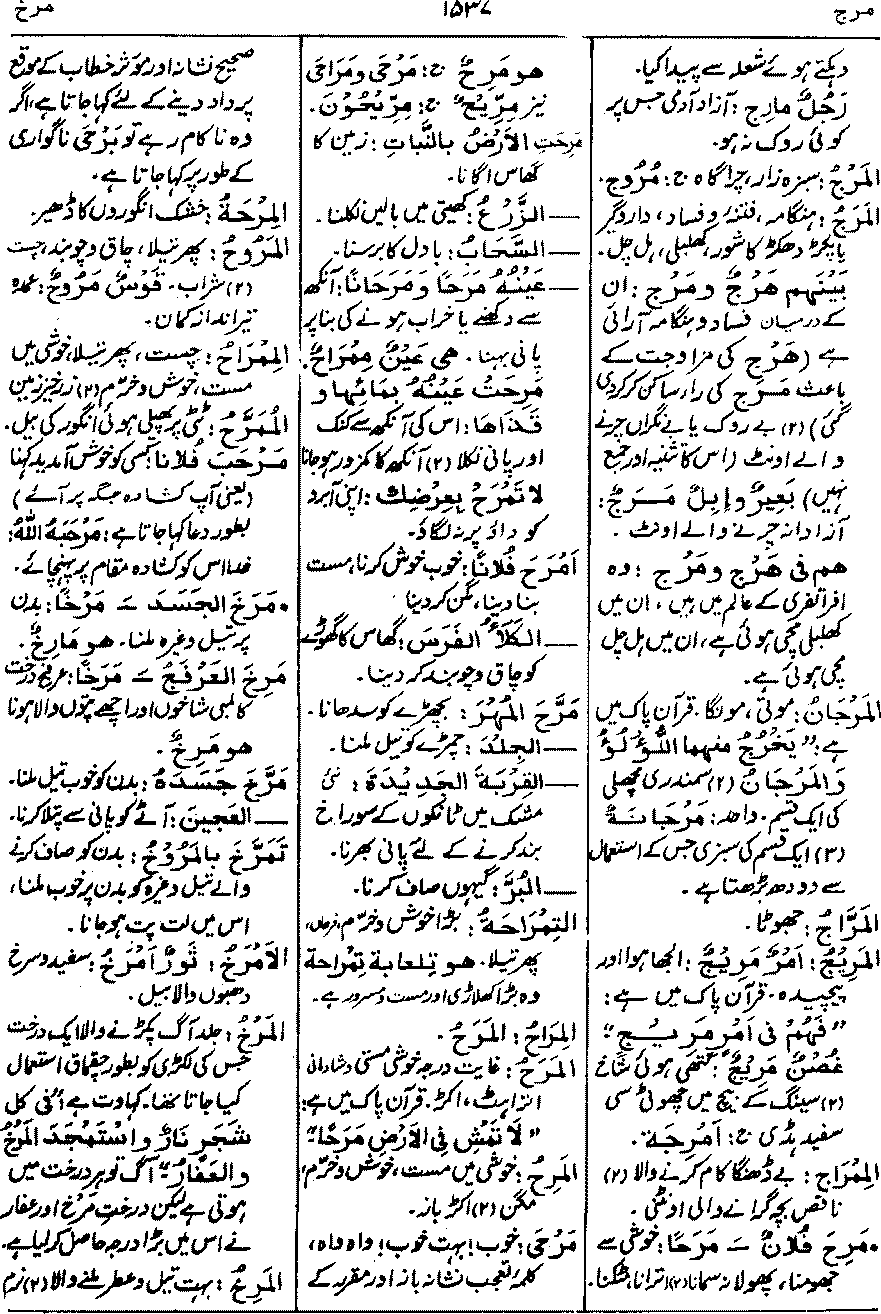 مرج
۱۵۳۷
مرخ
دہکتے ہوئے شعلہ سے پیدا کیا۔
رَجُلٌ مارِج : آزاد آدمی جس پر
کوئی روک نہ ہو۔
المَرْجُ : سبزہ زار، چراگاہ ج: مُرُوج۔
المَرَجُ : ہنگامہ، فتنہ و فساد، داروگیر
یا پکڑ دھکڑ کا شور، کھلبلی، ہل چل۔
بَيْنَهم هَرْجٌ و مَرْجٌ : ان
کے درمیان فساد و ہنگامہ آرائی
ہے (هَرْج کی مزاوجت کے
باعث مَرَج کی راء ساکن کر دی
گئی) (۲) بے روک یا بے نگراں چرنے
والے اونٹ (اس کا تثنیہ اور جمع
نہیں) بَعِيرٌ و إبِلٌ مَرَجٌ :
آزادانہ چرنے والے اونٹ ۔
هم فی هَرْجٍ ومَرْجٍ : وہ
افراتفری کے عالم میں ہیں ، ان میں
کھلبلی مچی ہوئی ہے، ان میں ہل چل
مچی ہوئی ہے۔
المَرْجَانُ : موتی، مونگا۔ قرآن پاک میں
ہے: ”يَخْرُجُ مِنْهما اللُّؤْلُؤُ
وَالْمَرْجَانُ“ (۲) سمندری مچھلی
کی ایک قسم۔ واحد: مَرْجَانَةٌ
(۳) ایک قسم کی سبزی جس کے استعمال
سے دودھ بڑھتا ہے ۔
المَرَّاجُ : جھوٹا۔
المَرِيْجُ : أَمْرٌ مَرِيْجٌ : الجھا ہوا اور
پیچیدہ ۔ قرآن پاک میں ہے :
”فَهُمْ فِی أَمْرٍ مَرِيْجٍ“؛
غُصْنٌ مَرِيْجٌ : گتھی ہوئی شاخ
(۲) سینگ کے بیچ میں چھوٹی سی
سفید ہڈی ج: أَمْرِجَة۔
المِمْرَاج : بے ڈھنگا کام کرنے والا (۲)
ناقص بچہ گرانے والی اونٹنی ۔
• مَرِحَ فُلانٌ ــَ مَرَحًا : خوشی سے
جھومنا، پھولا نہ سمانا (۲) اترانا، مٹکنا۔
هو مَرِحٌ ج: مَرْحَى ومَرَاحَى
نیز مِرِّيْحٌ ج: مِرِّيْحُوْن۔
مَرِحَتِ الأَرْضُ بالنَّباتِ : زمین کا
گھاس اگانا۔
ــــ الزَّرْعُ : کھیتی میں بالیں نکلنا۔
ــــ السَّحَابُ : بادل کا برسنا۔
ــــ عَيْنُهُ مَرَحًا ومَرَحَانًا : آنکھ
سے دکھنے یا خراب ہونے کی بنا پر
پانی بہنا ۔ هی عَيْنٌ مِمْرَاحٌ۔
مَرِحَتْ عَيْنُهُ بمَائها و
قَذَاها : اس کی آنکھ سے کنک
اور پانی نکلا (۲) آنکھ کا کمزور ہو جانا
لا تَمْرَحْ بِعِرْضِك : اپنی آبرو
کو داؤ پر نہ لگاؤ۔
أَمْرَحَ فُلَانًا : خوب خوش کرنا، مست
بنا دینا، مگن کر دینا
ــــ الكَلَأُ الفَرَسَ : گھاس کا گھوڑے
کو چاق و چوبند کر دینا۔
مَرَّحَ المُهْرَ : بچھڑے کو سدھانا۔
ــــ الجِلْدَ : چمڑے کو تیل ملنا۔
ــــ القِرْبَةَ الجَدِيْدَةَ : نئی
مشک میں ٹانکوں کے سوراخ
بند کرنے کے لئے پانی بھرنا۔
ــــ البُرَّ : گیہوں صاف کرنا۔
التِّمْرَاحَةُ : بڑا خوش و خرّم، فرحاں،
پھرتیلا۔ هو تِلعابة تِمْراحة
وہ بڑا کھلاڑی اور مست و مسرور ہے۔
المِرَاحُ : المَرَحُ ۔
المَرَحُ : غایت درجہ خوشی مستی و شادمانی
اتراہٹ، اکڑ۔ قرآن پاک میں ہے:
”لَا تَمْشِ فِی الأَرْضِ مَرَحًا“
المَرِحُ : خوشی میں مست، خوش و خرّم،
مگن (۲) اکڑباز۔
مَرْحَى : خوب! بہت خوب! واہ واہ!
کلمۂ تعجب نشانہ باز اور مقرر کے
صحیح نشانہ اور مؤثر خطاب کے موقع
پر داد دینے کے لئے کہا جاتا ہے، اگر
وہ ناکام رہے تو بَرْحَى ناگواری
کے طور پر کہا جاتا ہے۔
المِرْحَةُ : خشک انگوروں کا ڈھیر۔
المَرُوْحُ : پھرتیلا، چاق و چوبند، چست
(۲) شراب ۔ قَوْسٌ مَرُوْحٌ : عمدہ
تیر انداز کمان۔
المِمْرَاحُ : چست، پھرتیلا، خوشی میں
مست، خوش و خرّم (۲) زرخیز زمین
المُمَرَّحُ : ٹٹی پر پھیلی ہوئی انگور کی بیل۔
مَرْحَبَ فُلَانًا : کسی کو خوش آمدید کہنا
(یعنی آپ کشادہ جگہ پر آئے)
بطور دعا کہا جاتا ہے : مَرْحَبَهُ اللهُ :
خدا اس کو کشادہ مقام پر پہنچائے۔
• مَرَخَ الجَسَدَ ــَ مَرْخًا : بدن
پر تیل وغیرہ ملنا۔ هو مارِخٌ۔
مَرِخَ العَرْفَجُ ــَ مَرَخًا : عرفج درخت
کا لمبی شاخوں اور اچھے پتوں والا ہونا
هو مَرِخٌ ۔
مَرَّخَ جَسَدَهُ : بدن کو خوب تیل ملنا۔
ــــ العَجِينَ : آٹے کو پانی سے پتلا کرنا۔
تَمَرَّخَ بالمَرُوْخِ : بدن کو صاف کرنے
والے تیل وغیرہ کو بدن پر خوب ملنا،
اس میں لت پت ہو جانا ۔
الأَمْرَخُ : ثَوْرٌ أَمْرَخُ : سفید و سرخ
دھبوں والا بیل ۔
المَرْخُ : جلد آگ پکڑنے والا ایک درخت
جس کی لکڑی کو بطور چقماق استعمال
کیا جاتا تھا۔ کہاوت ہے ”فی کل
شَجَرٍ نَارٌ واسْتَمْجَدَ المَرْخُ
والعَفَارُ“ آگ تو ہر درخت میں
ہوتی ہے لیکن درخت مَرْخ اور عفار
نے اس میں بڑا درجہ حاصل کر لیا ہے۔
المَرِخُ : بہت تیل و عطر ملنے والا (۲) نرم